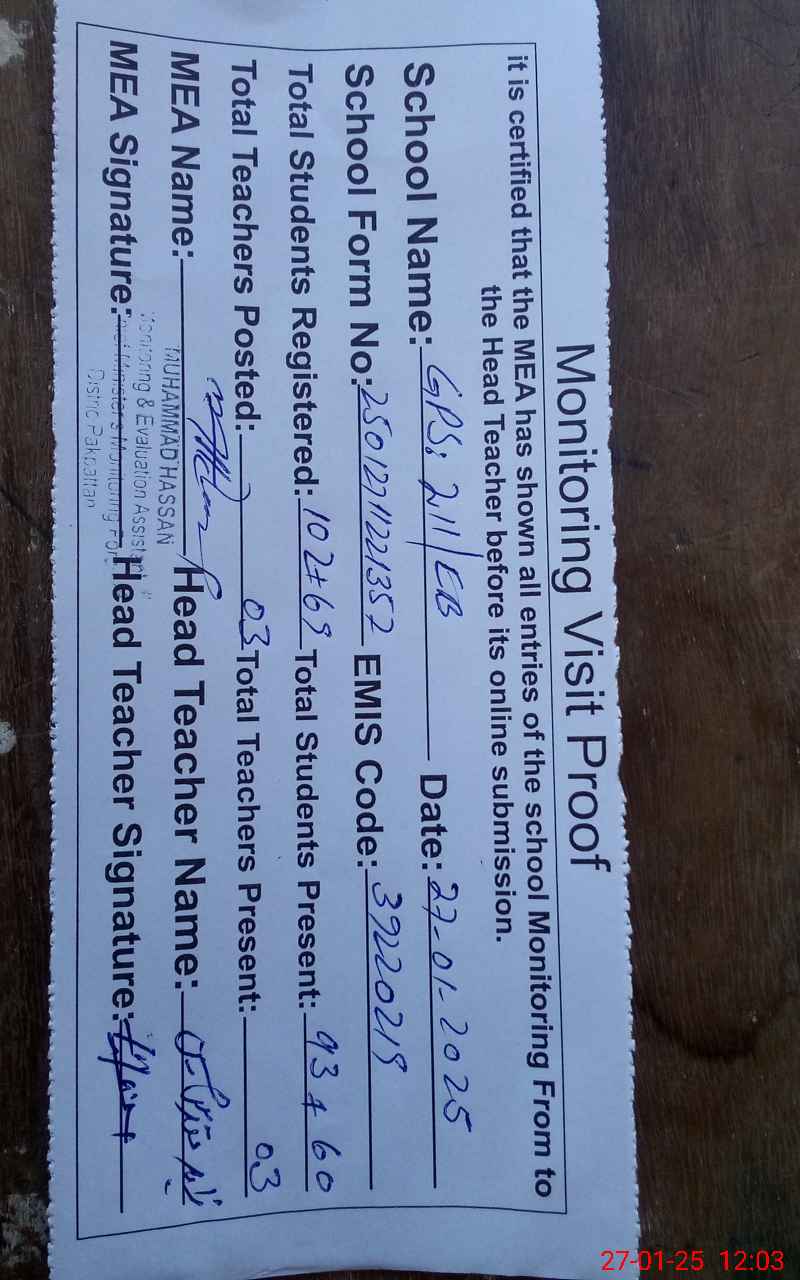 Monitoring Visit Proof
it is certified that the MEA has shown all entries of the school Monitoring From to
the Head Teacher before its online submission.
School Name: GPS: 211/EB Date: 27-01-2025
School Form No: 2501271121357 EMIS Code: 39220219
Total Students Registered: 102+69 Total Students Present: 93+60
Total Teachers Posted: 03 Total Teachers Present: 03
MEA Name: Head Teacher Name:
MUHAMMAD HASSAN
Monitoring & Evaluation Assistant
MEA Signature: Head Teacher Signature:
Chief Minister's Monitoring Force
District Pakpattan
27-01-25 12:03